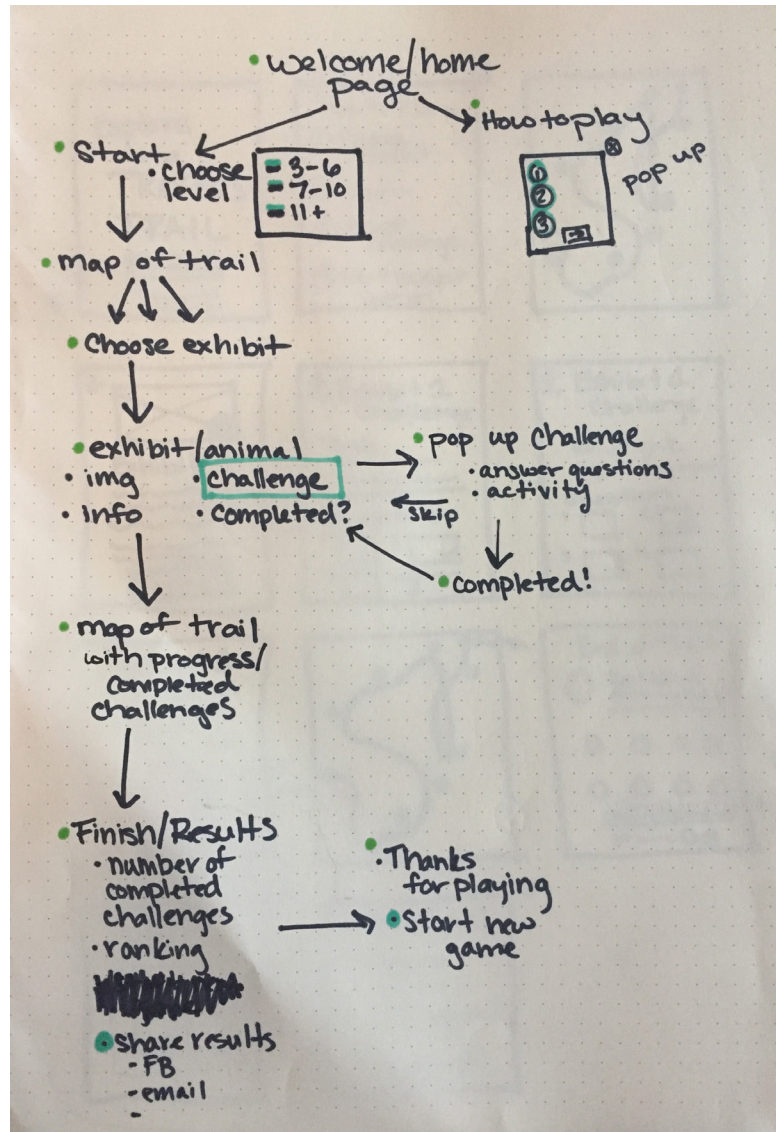 • Welcome/home
page
• How to play
• Start
• choose
level
- 3-6
- 7-10
- 11+
1
2
3
x
pop up
• map of trail
• Choose exhibit
• exhibit/animal
• img
• challenge
• info
• completed?
• pop up challenge
• answer questions
• activity
skip
• completed!
• map of trail
with progress/
completed
challenges
• Finish/Results
• number of
completed
challenges
• ranking
• Share results
- FB
- email
-
• Thanks
for playing
• Start new
game